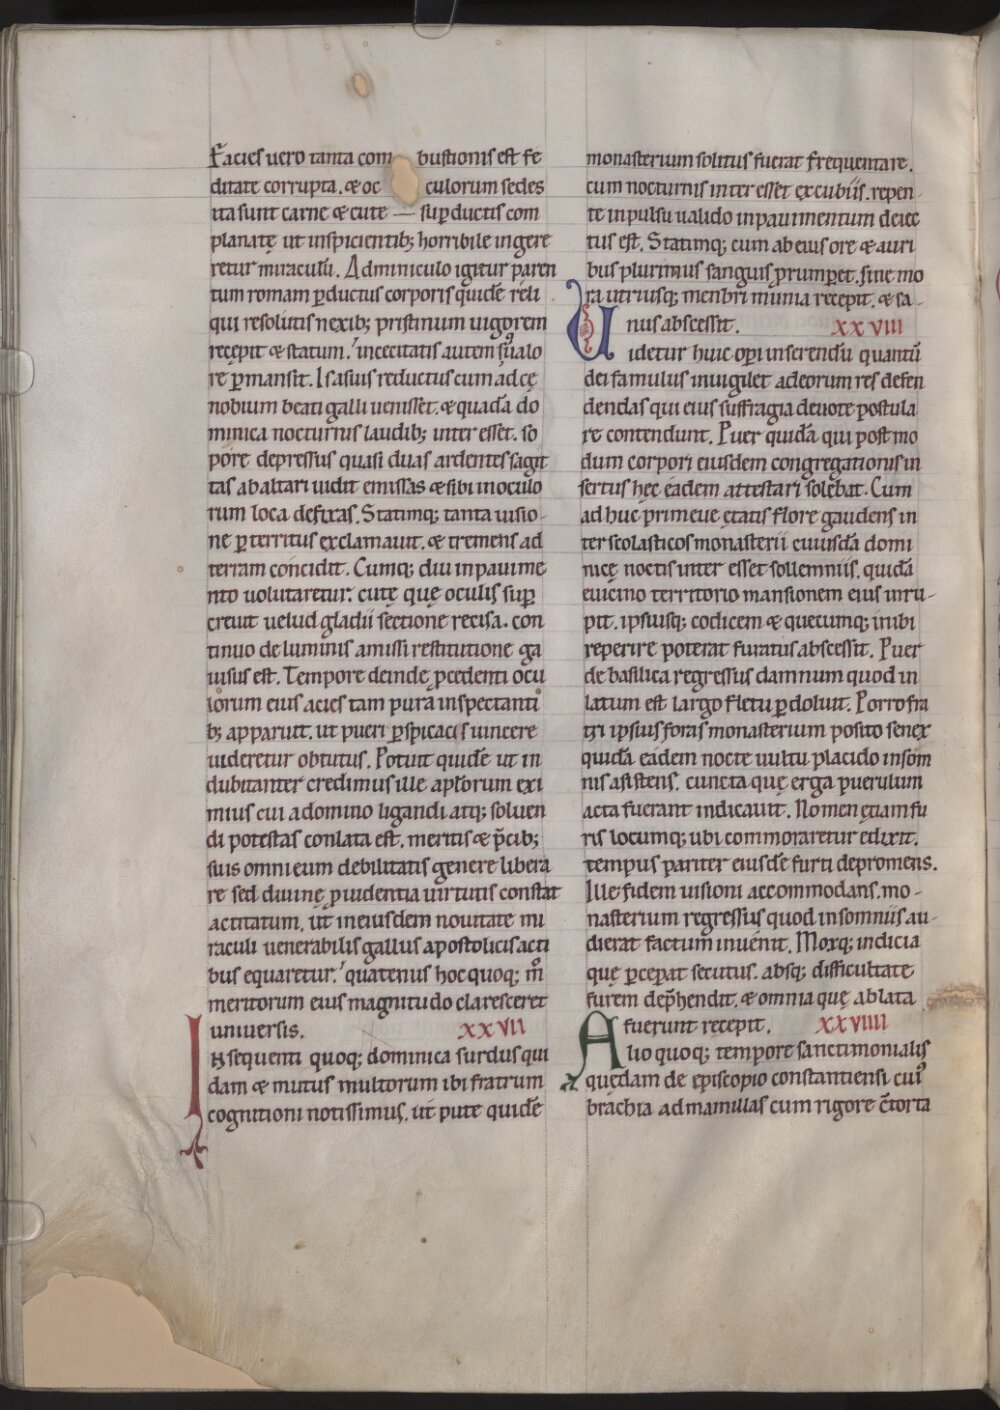 Facies uero tanta com bustionis est fe
ditate corrupta. & oc culorum sedes
ita sunt carne & cute — sup ductis com
planatę ut inspicientib; horribile ingere
retur miraculū. Adminiculo igitur paren
tum romam pductus corporis quidē reli
qui resolutis nexib; pristinum uigorem
recepit & statum. incecitatis autem
re pmansit. Is a suis reductus cum ad cę
nobium beati galli uenisset. & quadā do
minica nocturnis laudib; inter esset. so
pore depressus quasi duas ardentes sagit
tas ab altari uidit emissas & sibi in oculo
rum loca defixas. Statimq; tanta uisio-
ne pterritus exclamauit. & tremens ad
terram concidit. Cumq; diu in pauime
nto uolutaretur. cutę quę oculis sup
creuit uelud gladii sectione recisa. con
tinuo de luminis amissi restitutione ga
uisus est. Tempore deinde pcedenti ocu
lorum eius acies tam pura inspectanti
b; apparuit. ut pueri pspicacis uincere
uideretur obtutus. Potuit quidē ut in
dubitanter credimus ille aplorum exi
mius cui a domino ligandi atq; soluen
di potestas conlata est. meritis & p̄cib;
suis omni eum debilitatis genere libera
re sed diuinę puidentia uirtutis constat
actitatum. ut in eiusdem nouitate mi
raculi uenerabilis gallus apostolicis acti
bus equaretur. quatenus hoc quoq; m̄
meritorum eius magnitudo claresceret
uniuersis. xxvii
Insequenti quoq; dominica surdus qui
dam & mutus multorum ibi fratrum
cognitioni notissimus. ut pute quidē
monasterium solitus fuerat frequentare.
cum nocturnis inter esset excubiis. repen-
te inpulsu ualido in pauimentum deiec
tus est. Statimq; cum ab eius ore & auri
bus plurimus sanguis prumpet. sine mo
ra utriusq; menbri munia recepit. & sa-
nus abscessit. xxviii
Uidetur huic opi inserendū quantū
dei famulus inuigilet ad eorum res defen
dendas qui eius suffragia deuote postula
re contendunt. Puer quidā qui post mo
dum corpori eiusdem congregationis in
sertus hęc eadem attestari solebat. Cum
ad huc primeue ętatis flore gaudens in
ter scolasticos monasterii cuiusdā domi
nicę noctis inter esset sollemniis. quidā
e uicino territorio mansionem eius inru-
pit. ipsiusq; codicem & quecumq; inibi
reperire poterat furatus abscessit. Puer
de basilica regressus damnum quod in
latum est largo fletu pdoluit. Porro fra
tri ipsius foras monasterium posito senex
quidā eadem nocte uultu placido insom
nis asistens. cuncta quę erga puerulum
acta fuerant indicauit. Nomen etiam fu
ris locumq; ubi commoraretur edixit.
tempus pariter eiusdē furti depromens.
Ille fidem uisioni accommodans. mo-
nasterium regressus quod in somniis au-
dierat factum inuenit. Moxq; indicia
quę pcepat secutus. absq; difficultate
furem dep̄hendit. & omnia quę ablata
fuerunt recepit. xxviiii
Alio quoq; tempore sanctimonialis
quędam de episcopio constantiensi cui'
brachia ad mamillas cum rigore c̄torta